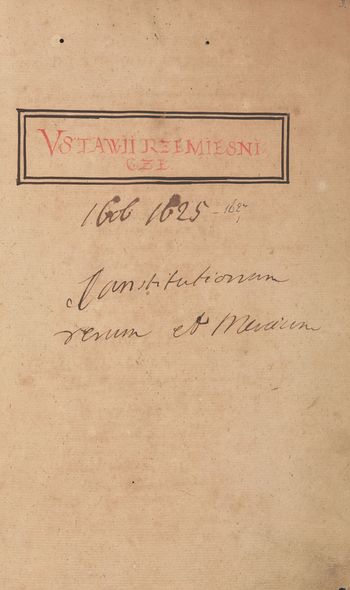 VSTAWII RZEMIESNI
CZE
1606 1625 - 1627
Constitutionum
rerum et Mercium